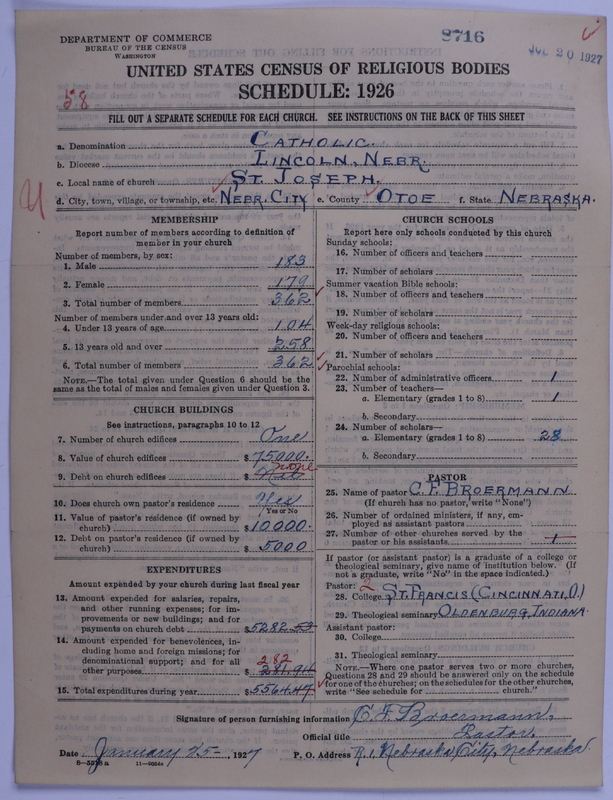 DEPARTMENT OF COMMERCE
BUREAU OF THE CENSUS
WASHINGTON
8716
JUL 20 1927
UNITED STATES CENSUS OF RELIGIOUS BODIES
SCHEDULE: 1926
58
FILL OUT A SEPARATE SCHEDULE FOR EACH CHURCH. SEE INSTRUCTIONS ON THE BACK OF THIS SHEET
a. Denomination CATHOLIC.
b. Diocese LINCOLN, NEBR.
c. Local name of church ST. JOSEPH.
d. City, town, village, or township, etc. NEBR. CITY e. County OTOE f. State NEBRASKA.
MEMBERSHIP
Report number of members according to definition of member in your church
Number of members, by sex:
1. Male 183
2. Female 179
3. Total number of members 362
Number of members under and over 13 years old:
4. Under 13 years of age 104
5. 13 years old and over 258
6. Total number of members 362
NOTE.—The total given under Question 6 should be the same as the total of males and females given under Question 3.
CHURCH BUILDINGS
See instructions, paragraphs 10 to 12
7. Number of church edifices One
8. Value of church edifices $75000.
9. Debt on church edifices $ none
10. Does church own pastor's residence Yes
Yes or No
11. Value of pastor's residence (if owned by church) $10000.
12. Debt on pastor's residence (if owned by church) $5000
EXPENDITURES
Amount expended by your church during last fiscal year
13. Amount expended for salaries, repairs, and other running expenses; for improvements or new buildings; and for payments on church debt $5282.53
14. Amount expended for benevolences, including home and foreign missions; for denominational support; and for all other purposes $281.94 282
15. Total expenditures during year $5564.47
CHURCH SCHOOLS
Report here only schools conducted by this church
Sunday schools:
16. Number of officers and teachers
17. Number of scholars
Summer vacation Bible schools:
18. Number of officers and teachers
19. Number of scholars
Week-day religious schools:
20. Number of officers and teachers
21. Number of scholars
Parochial schools:
22. Number of administrative officers 1
23. Number of teachers—
a. Elementary (grades 1 to 8) 1
b. Secondary
24. Number of scholars—
a. Elementary (grades 1 to 8) 28
b. Secondary
PASTOR
25. Name of pastor C. F. BROERMANN
(If church has no pastor, write "None")
26. Number of ordained ministers, if any, employed as assistant pastors
27. Number of other churches served by the pastor or his assistants 1
If pastor (or assistant pastor) is a graduate of a college or theological seminary, give name of institution below. (If not a graduate, write "No" in the space indicated.)
Pastor: 2
28. College ST. FRANCIS (CINCINNATI, O.)
29. Theological seminary OLDENBURG, INDIANA.
Assistant pastor:
30. College
31. Theological seminary
NOTE.—Where one pastor serves two or more churches, Questions 28 and 29 should be answered only on the schedule for one of the churches; on the schedules for the other churches, write "See schedule for church."
Signature of person furnishing information C. F. Broermann.
Official title Pastor.
Date January 25-, 1927 P. O. Address R. 1. Nebraska City, Nebraska.